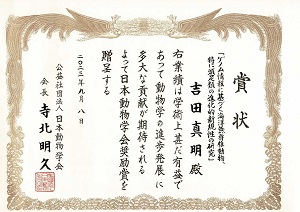 賞状
「ゲノム情報に基づく海洋無脊椎動物、
特に頭足類の進化的新規性の研究」
吉田真明殿
右業績は学術上甚だ有益で
あって動物学の進歩発展に
多大な貢献が期待される
よって日本動物学会奨励賞を
贈呈する
二〇二三年九月八日
公益社団法人日本動物学会
会長 寺北明久